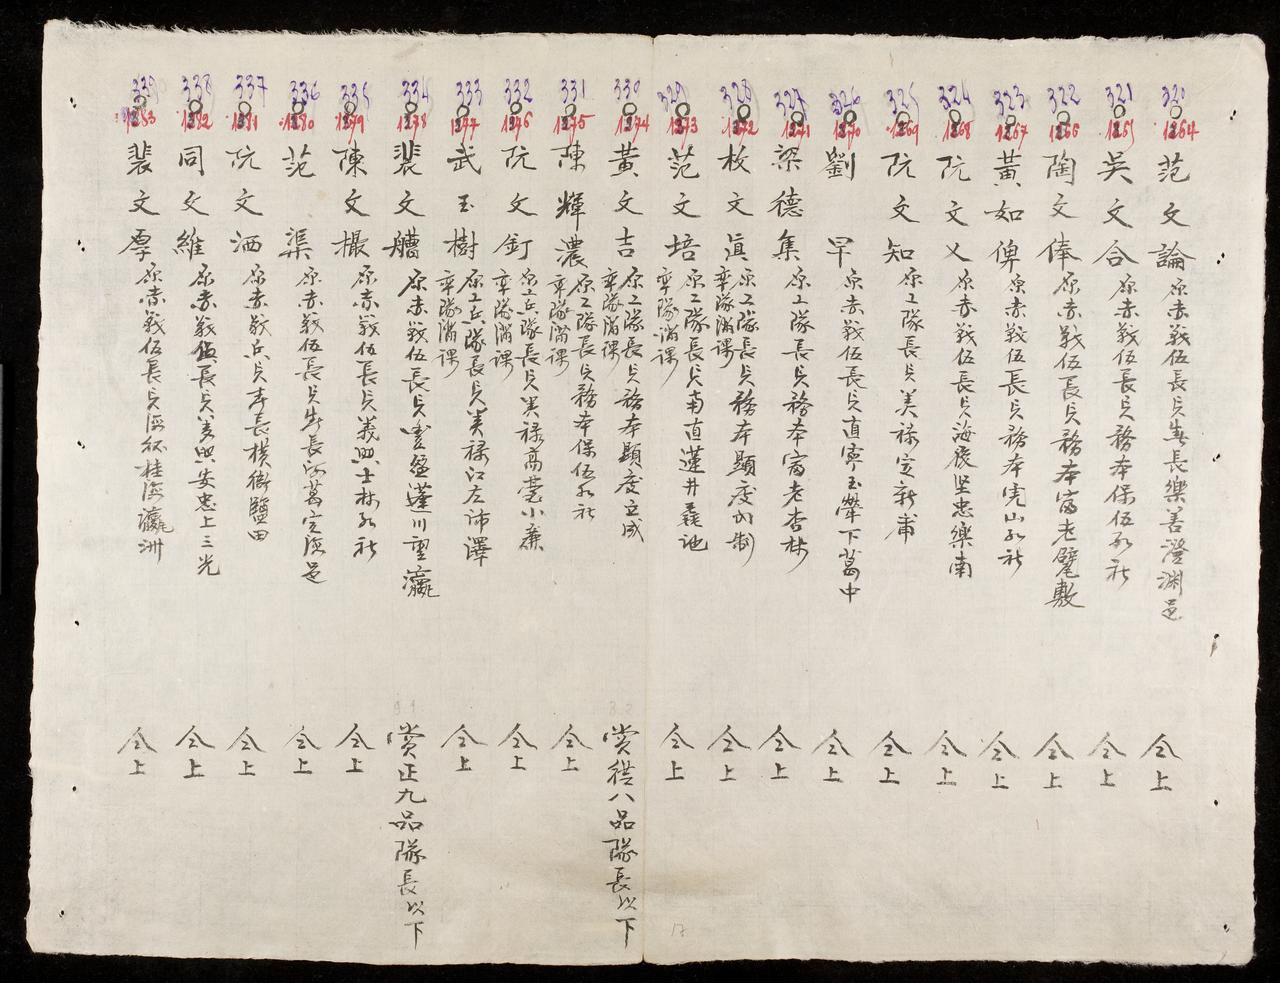 320 1264 范文論 原赤戰伍長兵 長樂善澄渊邑 仝上
321 1265 吳文合 原赤戰伍長兵務本保伍 社 仝上
322 1266 陶文俸 原赤戰伍長兵務本富老 敷 仝上
323 1267 黃如俾 原赤戰伍長兵務本 山 社 仝上
324 1268 阮文乂 原赤戰伍長兵海 坚忠樂南 仝上
325 1269 阮文知 原工隊長兵美祿 新甫 仝上
326 1270 劉早 原赤戰伍長兵直寧玉 下葛中 仝上
327 1271 梁德集 原工隊長兵務本富老杏林 仝上
328 1272 枚文 原工隊長兵務本顯慶 制 率隊滿課 仝上
329 1273 范文培 原工隊長兵南直蓮井 池 率隊滿課 仝上
330 1274 黃文吉 原工隊長兵務本顯慶立成 率隊滿課 賞從八品隊長以下
331 1275 陳輝濃 原工隊長兵務本保伍 社 率隊滿課 仝上
332 1276 阮文釘 原工兵隊長兵美祿高臺小 率隊滿課 仝上
333 1277 武玉樹 原工兵隊長兵美祿江左沛澤 率隊滿課 仝上
334 1278 裴文艚 原赤戰伍長兵 盈蓬川 瀛 賞正九品隊長以下
335 1279 陳文撮 原赤戰伍長兵義興士林 社 仝上
336 1280 范渠 原赤戰伍長兵 長 葛 邑 仝上
337 1281 阮文洒 原赤戰兵兵 長橫衙鹽田 仝上
338 1282 同文維 原赤戰伍長兵 興安忠上三光 仝上
339 1283 裴文厚 原赤戰伍長兵 桂 瀛洲 仝上
17